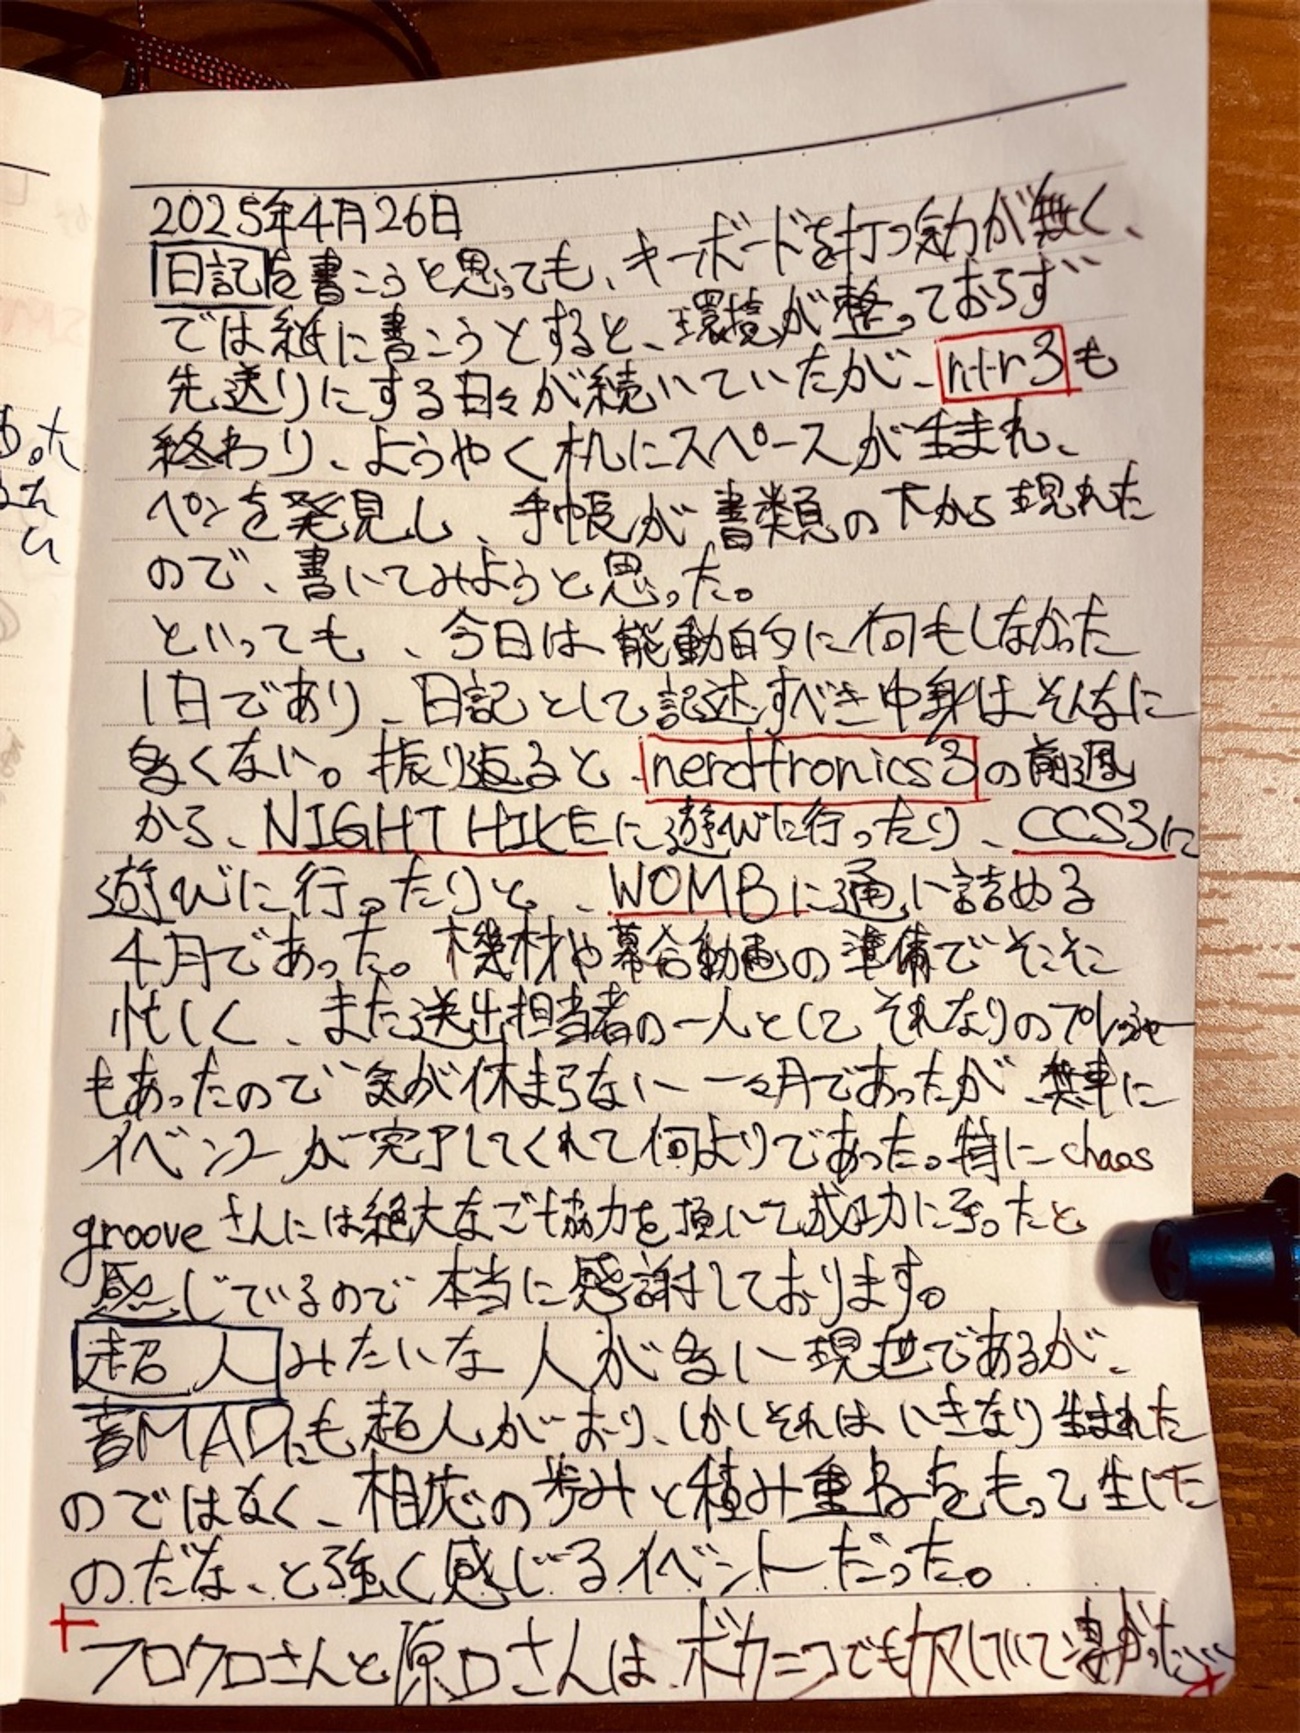 2025年4月26日
日記を書こうと思っても、キーボードを打つ気力が無く、
では紙に書こうとすると、環境が整っておらず
先送りにする日々が続いていたが、ntr3も
終わり、ようやく机にスペースが生まれ、
ペンを発見し、手帳が書類の下から現れた
ので、書いてみようと思った。
といっても、今日は能動的に何もしなかった
1日であり、日記として記述すべき中身はそんなに
多くない。振り返ると、nerdtronics3の前週
から、NIGHT HIKEに遊びに行ったり、CCS3に
遊びに行ったりと、WOMBに通い詰める
4月であった。機材や幕合動画の準備でそこそこ
忙しく、また送出担当者の一人としてそれなりのプレッシャー
もあったので気が休まらない一ヶ月であったが、無事に
イベントが完了してくれて何よりであった。特にchaos
grooveさんには絶大なご協力を頂いて成功に至ったと
感じているので本当に感謝しております。
超人みたいな人が多い現世であるが、
音MADにも超人がおり、しかしそれはいきなり生まれた
のではなく、相応の歩みと積み重ねをもって生じた
のだな、と強く感じるイベントだった。
フロクロさんと原口さんは、ボカニコでもカマしていて凄かった…